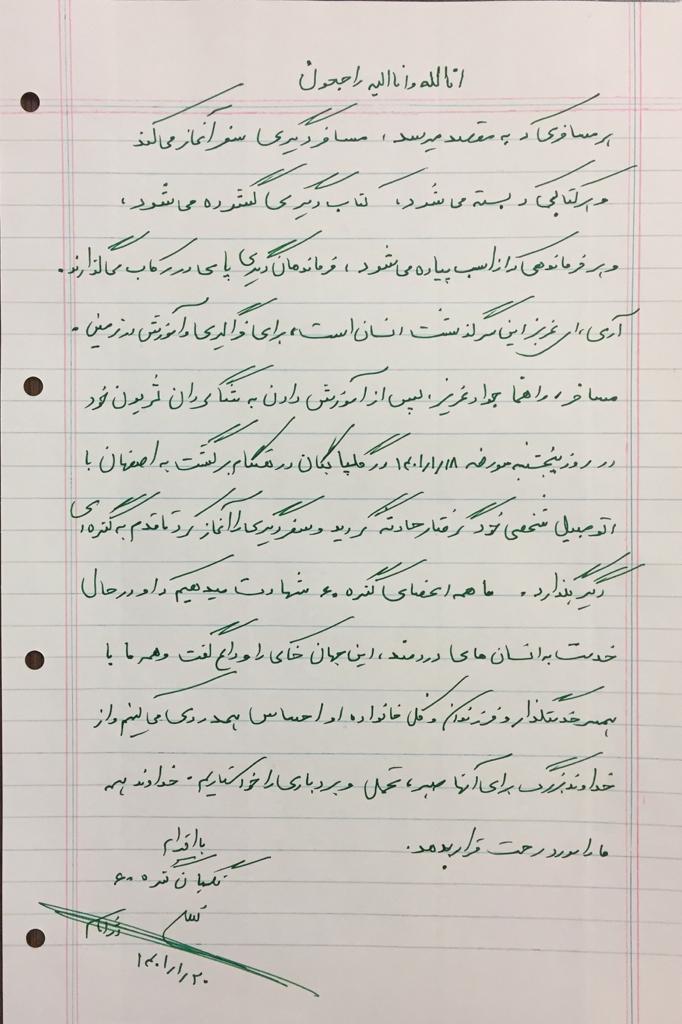 انا لله و انا الیه راجعون
هر مسافری که به مقصد میرسد، مسافر دیگری سفر آغاز می کند
و هر کتابی که بسته می شود، کتاب دیگری گشوده می شود،
و هر فرماندهی که از اسب پیاده می شود، فرماندهان دیگری پای در رکاب می گذارند.
آری، ای عزیز این سرگذشت انسان است، برای فراگیری و آموزش در زمین.
مسافر، راهنما جواد عزیز، پس از آموزش دادن به شاگردان لژیون خود
در روز پنجشنبه مورخه ۱۴۰۱/۱/۱۸ در گلپایگان در هنگام برگشت به اصفهان با
اتومبیل شخصی خود گرفتار حادثه گردید و سفر دیگری را آغاز کرد تا قدم به کنگره ای
دیگر بگذارد. ما همه اعضای کنگره ۶۰ شهادت میدهیم که او در حال
خدمت به انسان های دردمند، این جهان خاکی را وداع گفت و همه ما با
همسر خدمتگذار و فرزندان و کل خانواده او احساس همدردی می کنیم و از
خداوند بزرگ برای آنها صبر، تحمل و بردباری را خواستاریم. خداوند همه
ما را مورد رحمت قرار بدهد.
با احترام
نگهبان کنگره ۶۰
۱۴۰۱/۱/۲۰